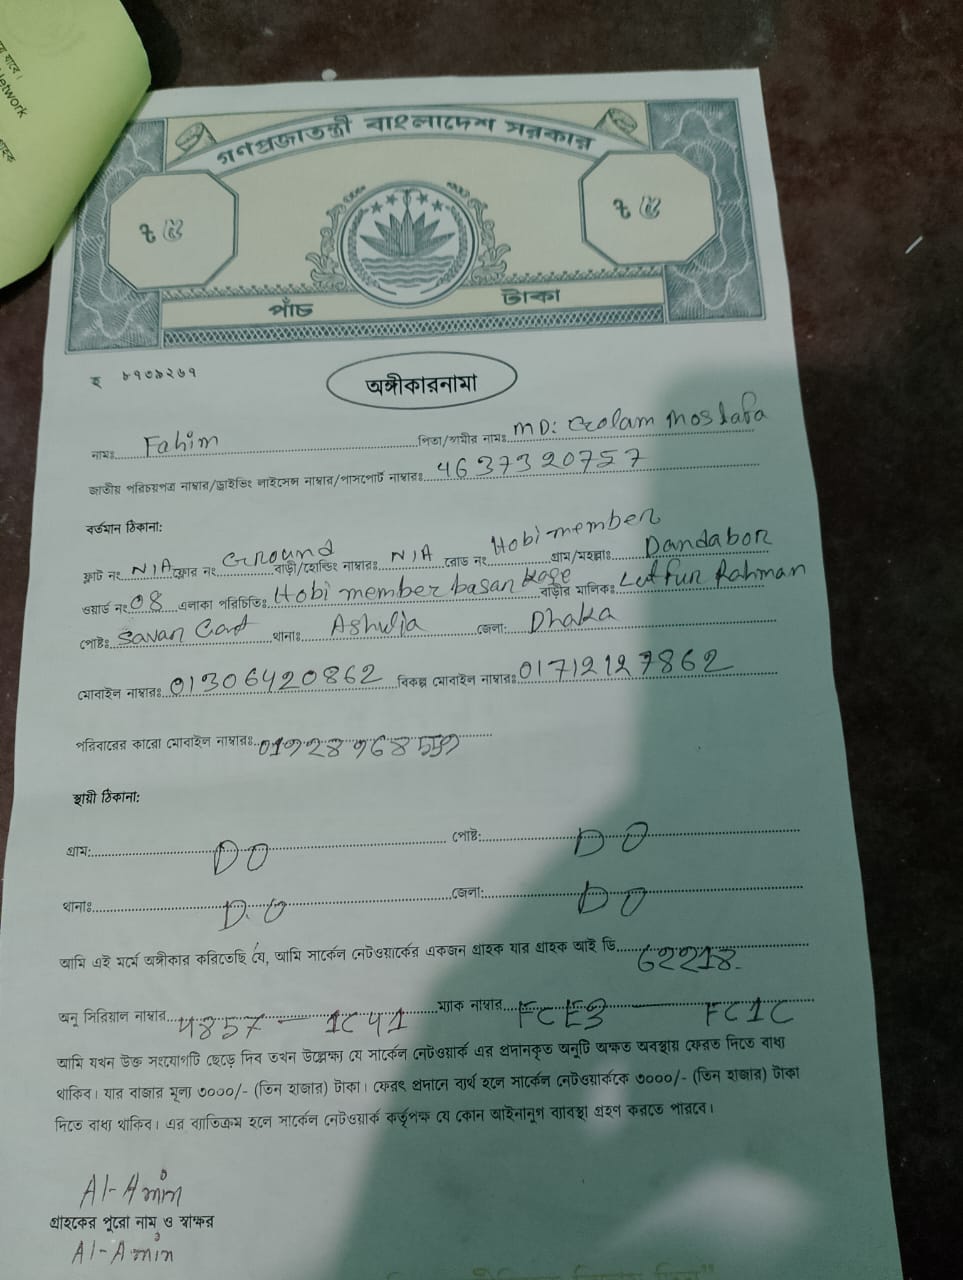 গণপ্রজাতন্ত্রী বাংলাদেশ সরকার
৫ ৫
পাঁচ টাকা
৮৭০৯২৬৭
অঙ্গীকারনামা
নামঃ Fahim পিতা/স্বামীর নামঃ MD: Golam Mostafa
জাতীয় পরিচয়পত্র নাম্বার/ড্রাইভিং লাইসেন্স নাম্বার/পাসপোর্ট নাম্বারঃ 4637320757
বর্তমান ঠিকানা:
ফ্লাট নং N/A ফ্লোর নং Ground বাড়ী/হোল্ডিং নাম্বারঃ N/A রোড নং Hobi member গ্রাম/মহল্লাঃ Dandabor
ওয়ার্ড নং 08 এলাকা পরিচিতিঃ Hobi member basar বাড়ীর মালিকঃ Lutfur Rahman
পোষ্টঃ Savar Cant থানাঃ Ashulia জেলা: Dhaka
মোবাইল নাম্বারঃ 01306420862 বিকল্প মোবাইল নাম্বারঃ 01712127862
পরিবারের কারো মোবাইল নাম্বারঃ
স্থায়ী ঠিকানা:
গ্রাম: DO পোষ্ট: DO
থানাঃ D.O জেলা: DO
আমি এই মর্মে অঙ্গীকার করিতেছি যে, আমি সার্কেল নেটওয়ার্কের একজন গ্রাহক যার গ্রাহক আই ডি 62218.
অনু সিরিয়াল নাম্বার 4857 — 1C41 ম্যাক নাম্বার FCE3 — FC1C
আমি যখন উক্ত সংযোগটি ছেড়ে দিব তখন উল্লেক্ষ্য যে সার্কেল নেটওয়ার্ক এর প্রদানকৃত অনুটি অক্ষত অবস্থায় ফেরত দিতে বাধ্য
থাকিব। যার বাজার মূল্য ৩০০০/- (তিন হাজার) টাকা। ফেরৎ প্রদানে ব্যর্থ হলে সার্কেল নেটওয়ার্ককে ৩০০০/- (তিন হাজার) টাকা
দিতে বাধ্য থাকিব। এর ব্যতিক্রম হলে সার্কেল নেটওয়ার্ক কর্তৃপক্ষ যে কোন আইনানুগ ব্যবস্থা গ্রহণ করতে পারবে।
Al-Amin
গ্রাহকের পুরো নাম ও স্বাক্ষর
Al-Amin